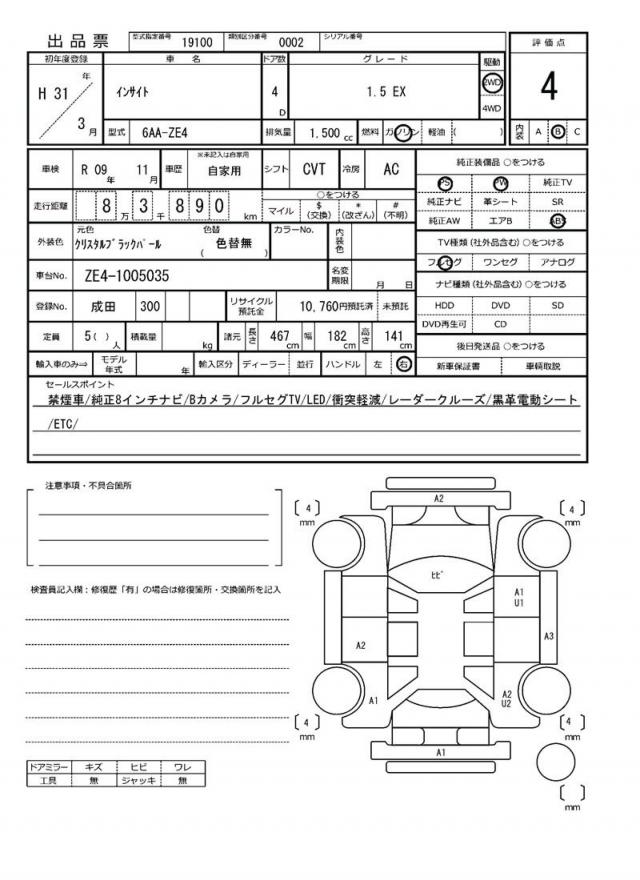 出品票 型式指定番号 19100 類別区分番号 0002 シリアル番号 評価点
初年度登録 車名 ドア数 グレード 駆動
H 31 年 3 月 インサイト 4 D 1.5 EX 2WD 4WD 4
型式 6AA-ZE4 排気量 1.500 cc 燃料 ガソリン 軽油 ( ) 内装 A B C
車検 R 09 年 11 月 車歴 ※未記入は自家用 自家用 シフト CVT 冷房 AC 純正装備品 ○をつける
PS PW 純正TV
走行距離 8 万 3 千 8 9 0 km ○をつける
マイル $ (交換) * (改ざん) # (不明)
純正ナビ 革シート SR
純正AW エアB ABS
外装色 元色 クリスタルブラックパール 色替 ( 色替無 ) カラーNo. 内装色
TV種類 (社外品含む) ○をつける
フルセグ ワンセグ アナログ
車台No. ZE4-1005035 名変期限 月 日
ナビ種類 (社外品含む) ○をつける
登録No. 成田 300 リサイクル預託金 10,760円預託済 未預託
HDD DVD SD
DVD再生可 CD
定員 5( ) 人 積載量 kg 諸元 長さ 467 cm 幅 182 cm 高さ 141 cm
後日発送品 ○をつける
輸入車のみ⇒ モデル年式 年 輸入区分 ディーラー 並行 ハンドル 左 右
新車保証書 車輌取説
セールスポイント
禁煙車/純正8インチナビ/Bカメラ/フルセグTV/LED/衝突軽減/レーダークルーズ/黒革電動シート
/ETC/
注意事項・不具合箇所
検査員記入欄：修復歴「有」の場合は修復箇所・交換箇所を記入
[ 4 ] mm
A2
[ 4 ] mm
ヒビ
A1
U1
A2
A3
A1
A2
U2
[ 4 ] mm
A1
[ 4 ] mm
[ ] mm
ドアミラー キズ ヒビ ワレ
工具 無 ジャッキ 無